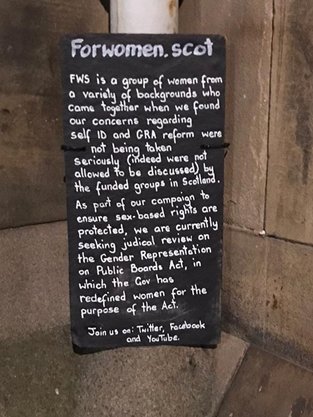 Forwomen.scot
FWS is a group of women from
a variety of backgrounds who
came together when we found
our concerns regarding
self ID and GRA reform were
not being taken
seriously (indeed were not
allowed to be discussed) by
the funded groups in Scotland.
As part of our campaign to
ensure sex-based rights are
protected, we are currently
seeking judical review on
the Gender Representation
on Public Boards Act, in
which the Gov has
redefined women for the
purpose of the Act.
Join us on: Twitter, Facebook
and YouTube.